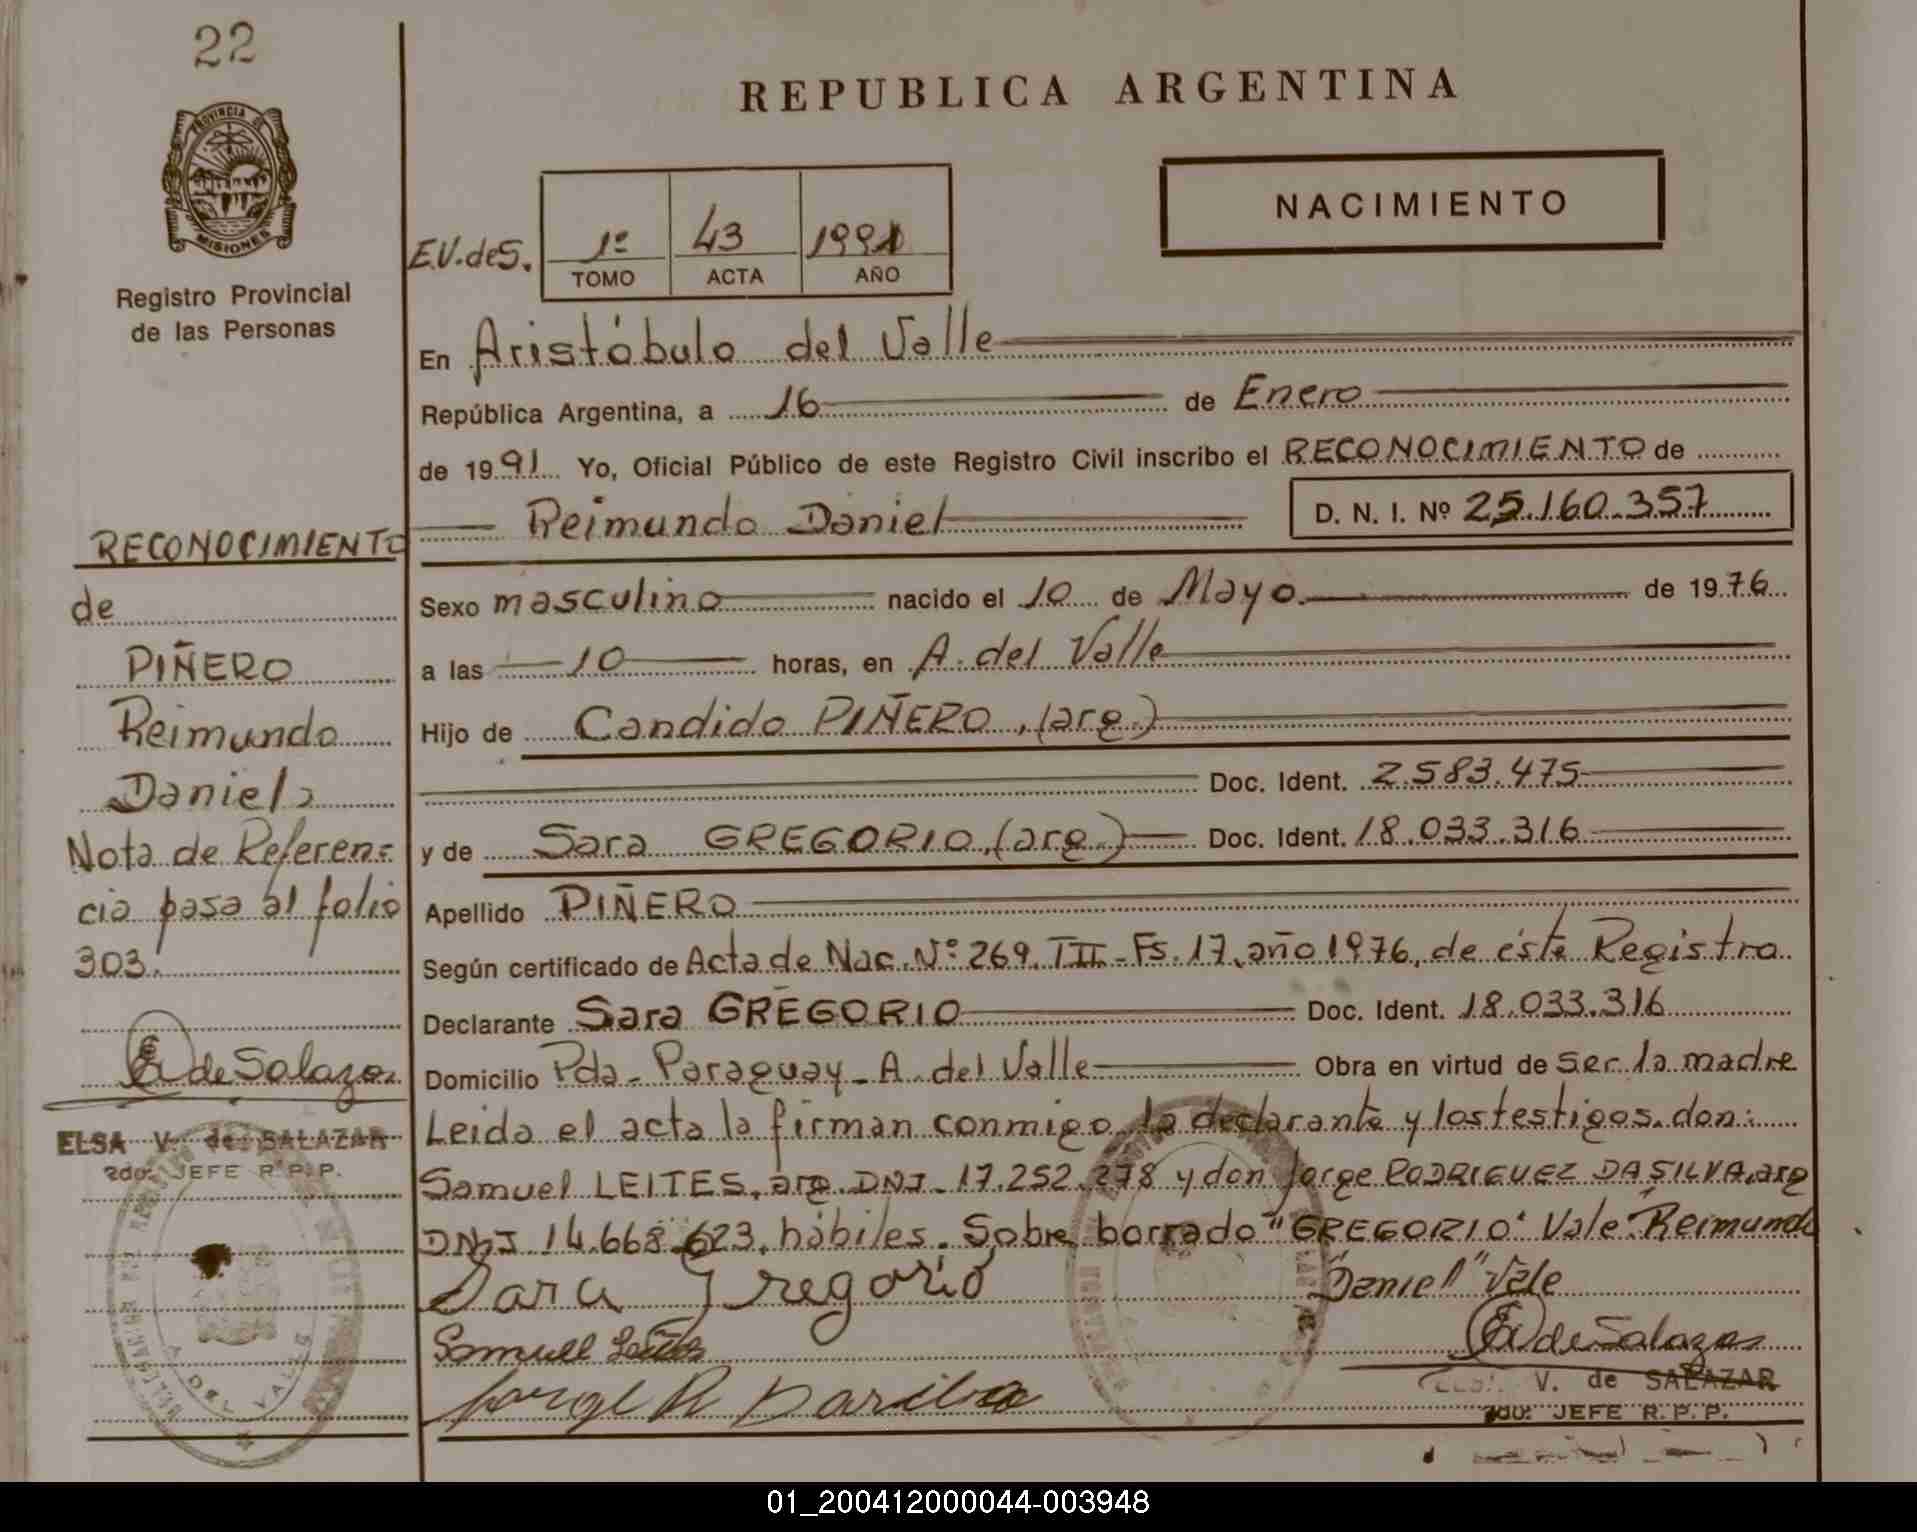 22
PROVINCIA DE
MISIONES
Registro Provincial
de las Personas
REPUBLICA ARGENTINA
NACIMIENTO
E.V.deS.
1º 43 1991
TOMO ACTA AÑO
En Aristóbulo del Valle
República Argentina, a 16 de Enero
de 1991 Yo, Oficial Público de este Registro Civil inscribo el RECONOCIMIENTO de
Reimundo Daniel D. N. I. Nº 25.160.357
Sexo masculino nacido el 10 de Mayo de 1976
a las 10 horas, en A. del Valle
Hijo de Candido PIÑERO, (arg.)
Doc. Ident. 2.583.475
y de Sara GREGORIO, (arg.) Doc. Ident. 18.033.316
Apellido PIÑERO
Según certificado de Acta de Nac. Nº 269. TII- Fs. 17, año 1976, de éste Registro
Declarante Sara GREGORIO Doc. Ident. 18.033.316
Domicilio Pda- Paraguay- A. del Valle Obra en virtud de ser la madre
Leida el acta la firman conmigo la declarante y los testigos, don:
Samuel LEITES, arg. DNI- 17.252.278 y don Jorge RODRIGUEZ DA SILVA, arg
DNI 14.668.623. hábiles. Sobre borrado "GREGORIO" Vale. "Reimundo
Daniel" Vale
Sara Gregorio
Samuell Leites
Jorge R Dasilva
E de Salazar
V. de SALAZAR
2do. JEFE R.P.P.
RECONOCIMIENTO
de
PIÑERO
Reimundo
Daniel
Nota de Referen=
cia pasa al folio
303.
E de Salazar
ELSA V. de SALAZAR
2do. JEFE R.P.P.
A. DEL VALLE
01_200412000044-003948